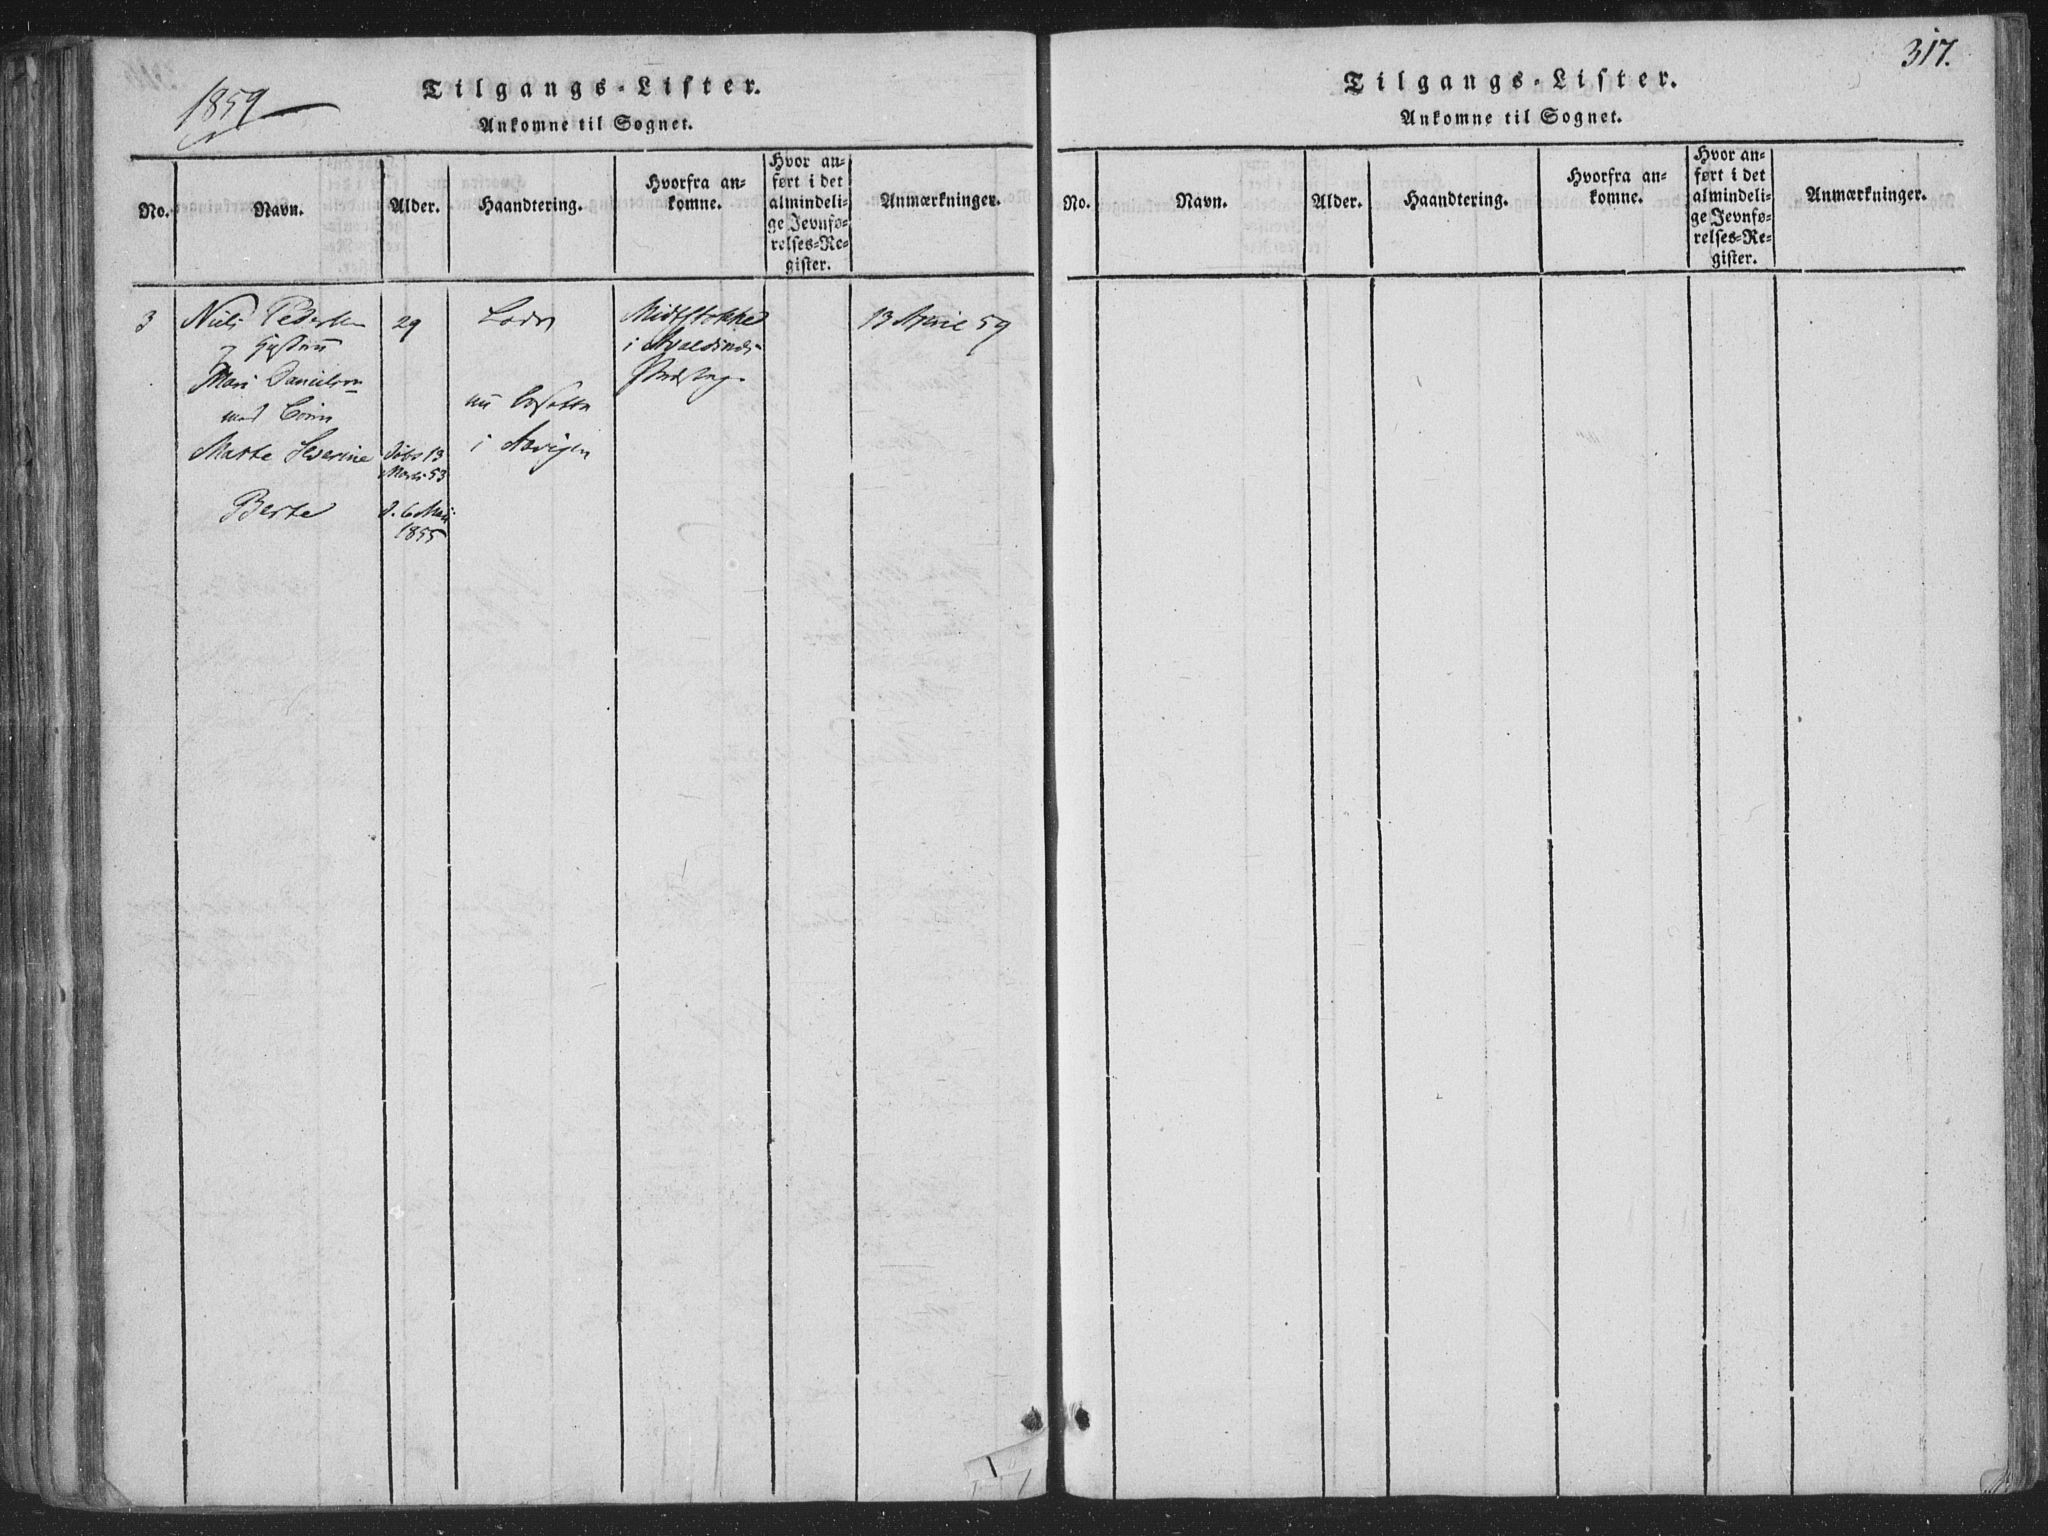 1859
Tilgangs-Lister.
Ankomne til Sognet.
No.
Navn.
Alder.
Haandtering.
Hvorfra an-
komne.
Hvor an-
ført i det
almindeli-
ge Jevnfø-
relses-Re-
gister.
Anmærkninger.
3
Niels Pedersen
og Hustru
Mari Danielsen
med Børn
Marte Severine
Berte
29
født 13
Marts 53
d. 6 Mai
1855
nu bosatte
i
Midtstokke
i
13 April 59
317.
Tilgangs-Lister.
Ankomne til Sognet.
No.
Navn.
Alder.
Haandtering.
Hvorfra an-
komne.
Hvor an-
ført i det
almindeli-
ge Jevnfø-
relses-Re-
gister.
Anmærkninger.